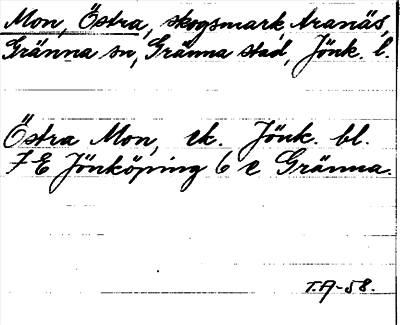 Mon, Östra, skogsmark, Aranäs,
Gränna sn, Gränna stad, Jönk. l.
Östra Mon, ek. Jönk. bl.
7 E Jönköping 6 e Gränna.
T.A-58.